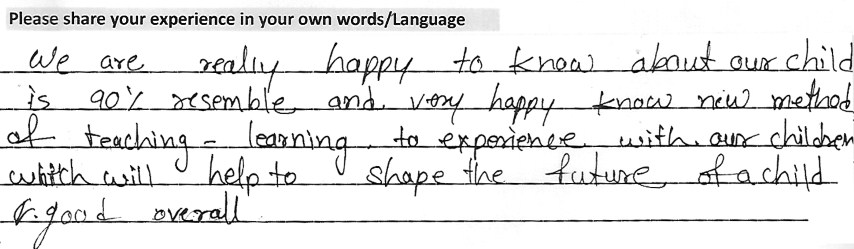 Please share your experience in your own words/Language
We are really happy to know about our child
is 90% resemble and. very happy know new method
of teaching - learning. to experience with. our children
which will help to shape the future of a child
& good overall